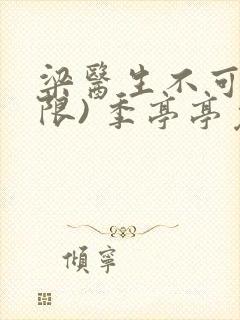 梁醫生不可
限) 季亭亭
傾寧